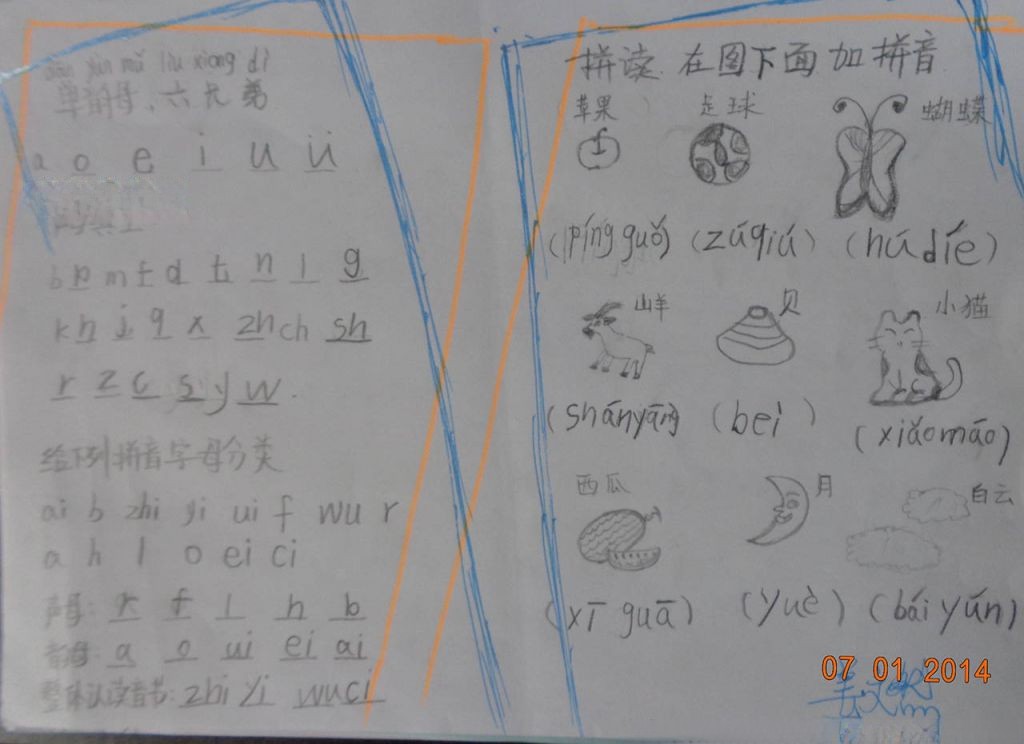 dān yùn mǔ liù xiong dì
单韵母、六兄弟
a o e i u ü
b p m f d t n l g
k h j q x zh ch sh
r z c s y w.
给下列拼音字母分类
ai b zhi yi ui f wu r
a h l o ei ci
声母: r f l h b
韵母: a o ui ei ai
整体认读音节: zhi yi wu ci
拼读 在图下面加拼音
苹果 足球 蝴蝶
(píng guǒ) (zúqiú) (húdíe)
山羊 贝 小猫
(shānyāng) (bei) (xiǎomáo)
西瓜 月 白云
(xī guā) (yuè) (bái yún)
07 01 2014